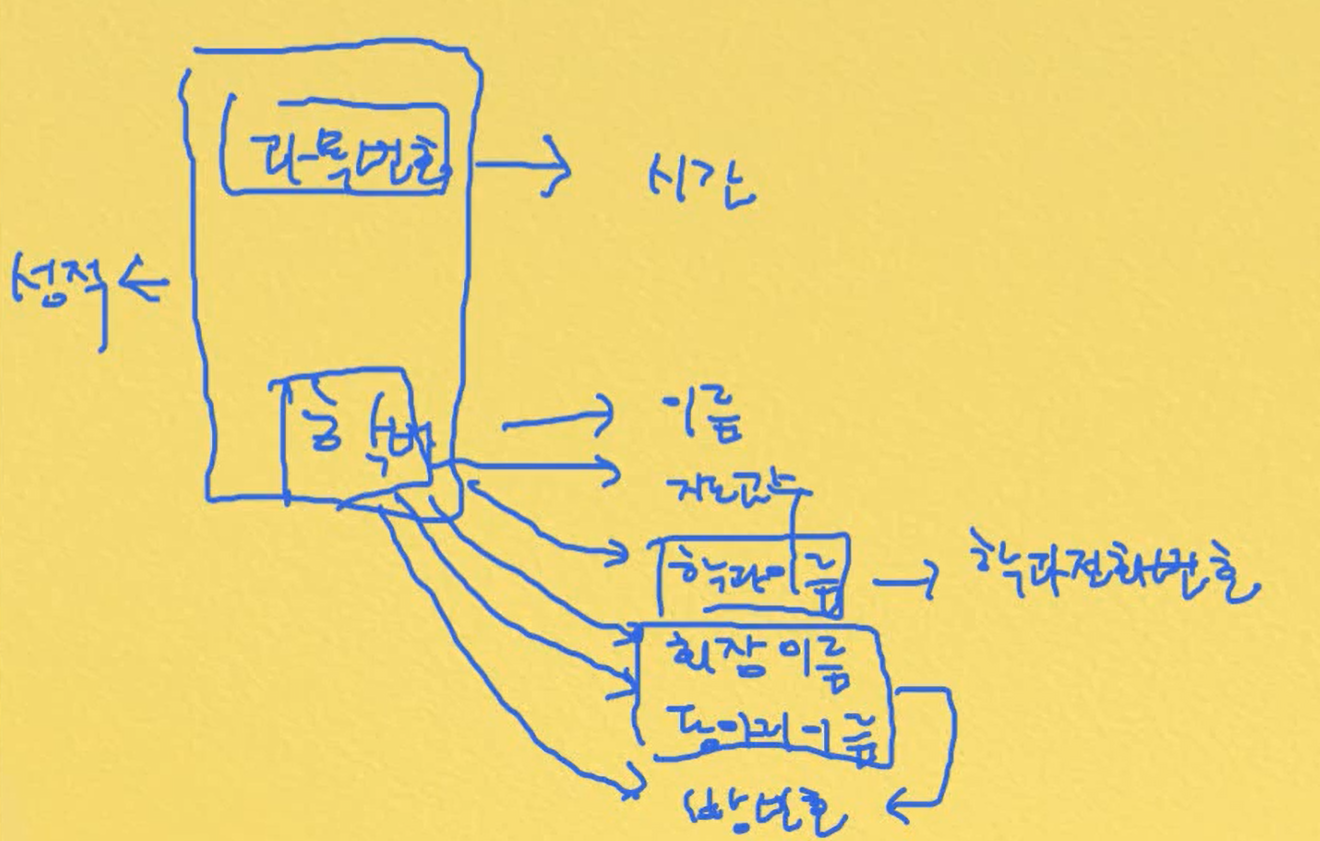 과목번호
시간
성적
학번
이름
지도교수
학과이름
학과전화번호
회장이름
동아리이름
방번호